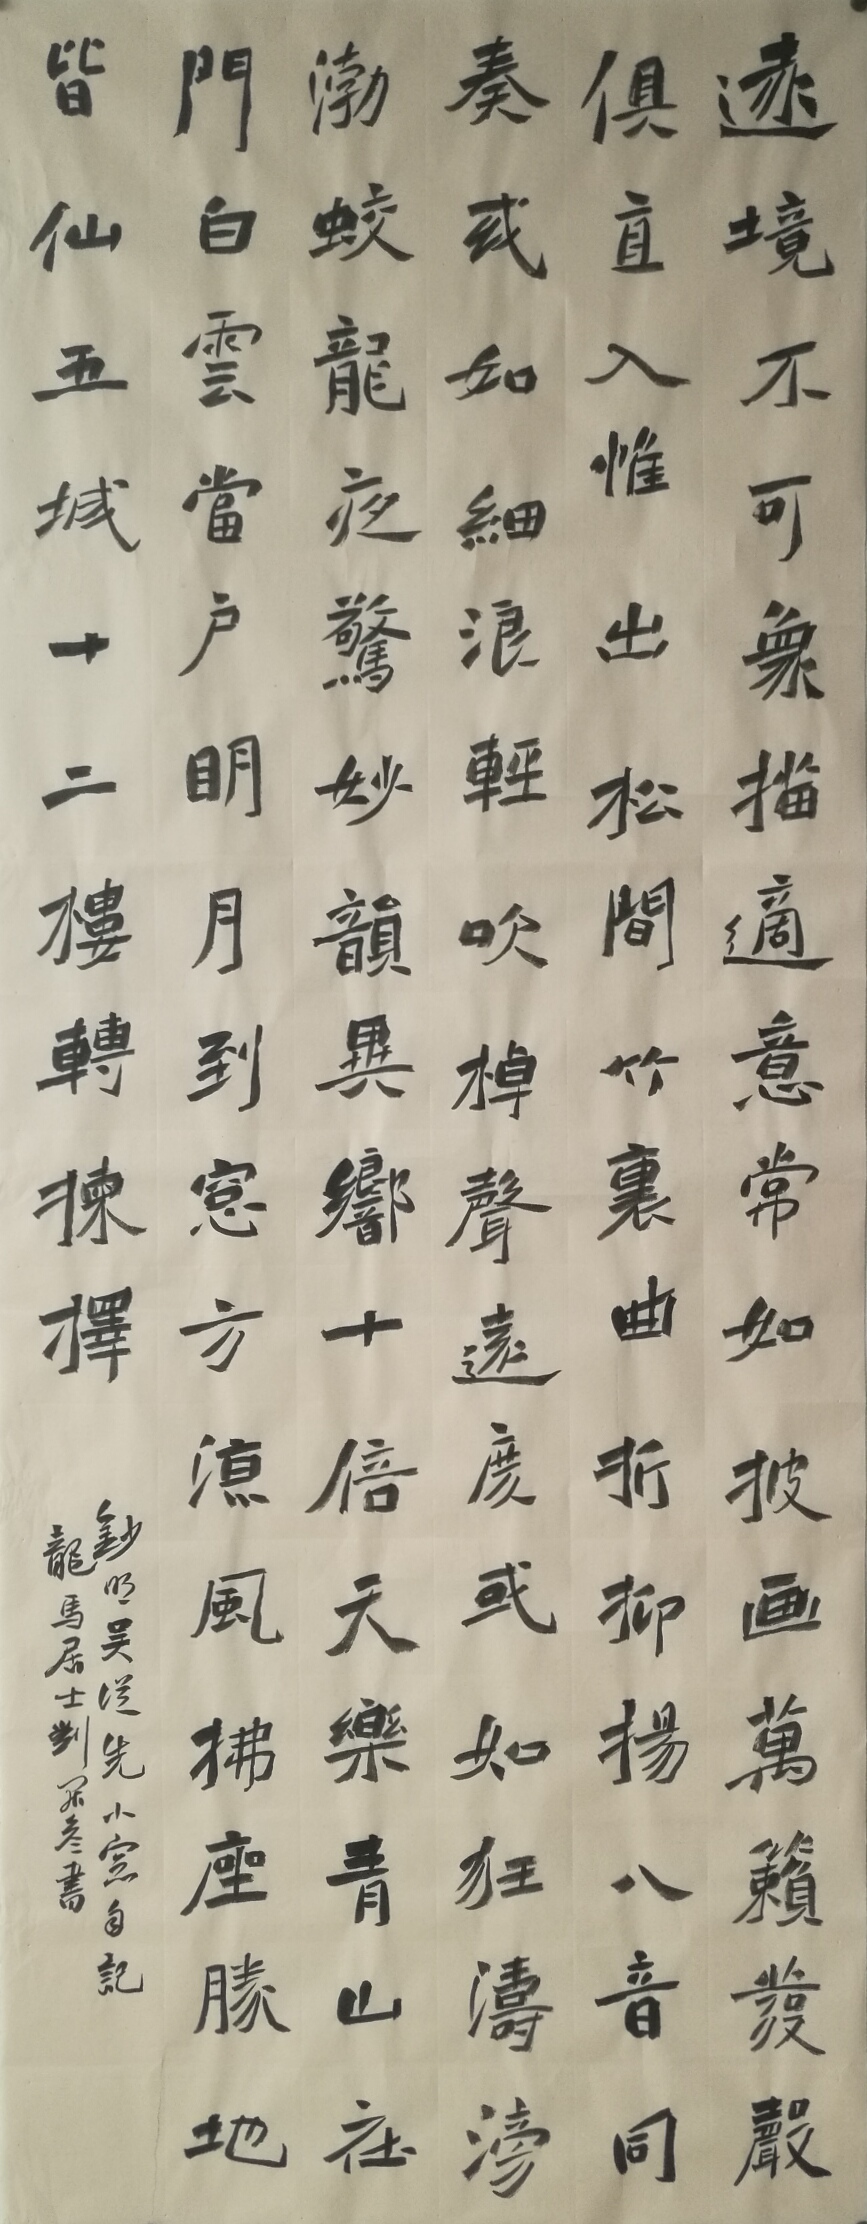 遠境不可兼描適意常如披画萬籟發聲
俱直入惟出松間竹裏曲折抑揚八音同
奏或如細浪輕吹棹聲遠度或如狂濤滂
渤蛟龍夜驚妙韻異響十倍天樂青山在
門白雲當户明月到窓方涼風拂座勝地
皆仙五城十二樓轉揀擇
鈔明吴從先小窓自記
龍馬居士劉書